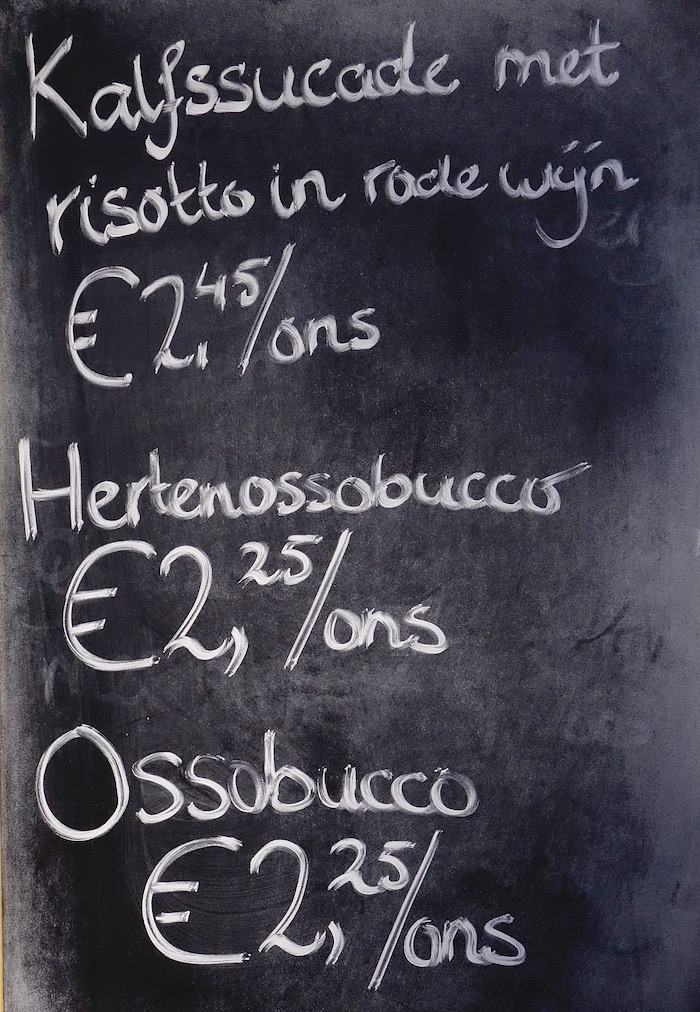 Kalfssucade met
risotto in rode wijn
€2,45/ons
Hertenossobucco
€2,25/ons
Ossobucco
€2,25/ons